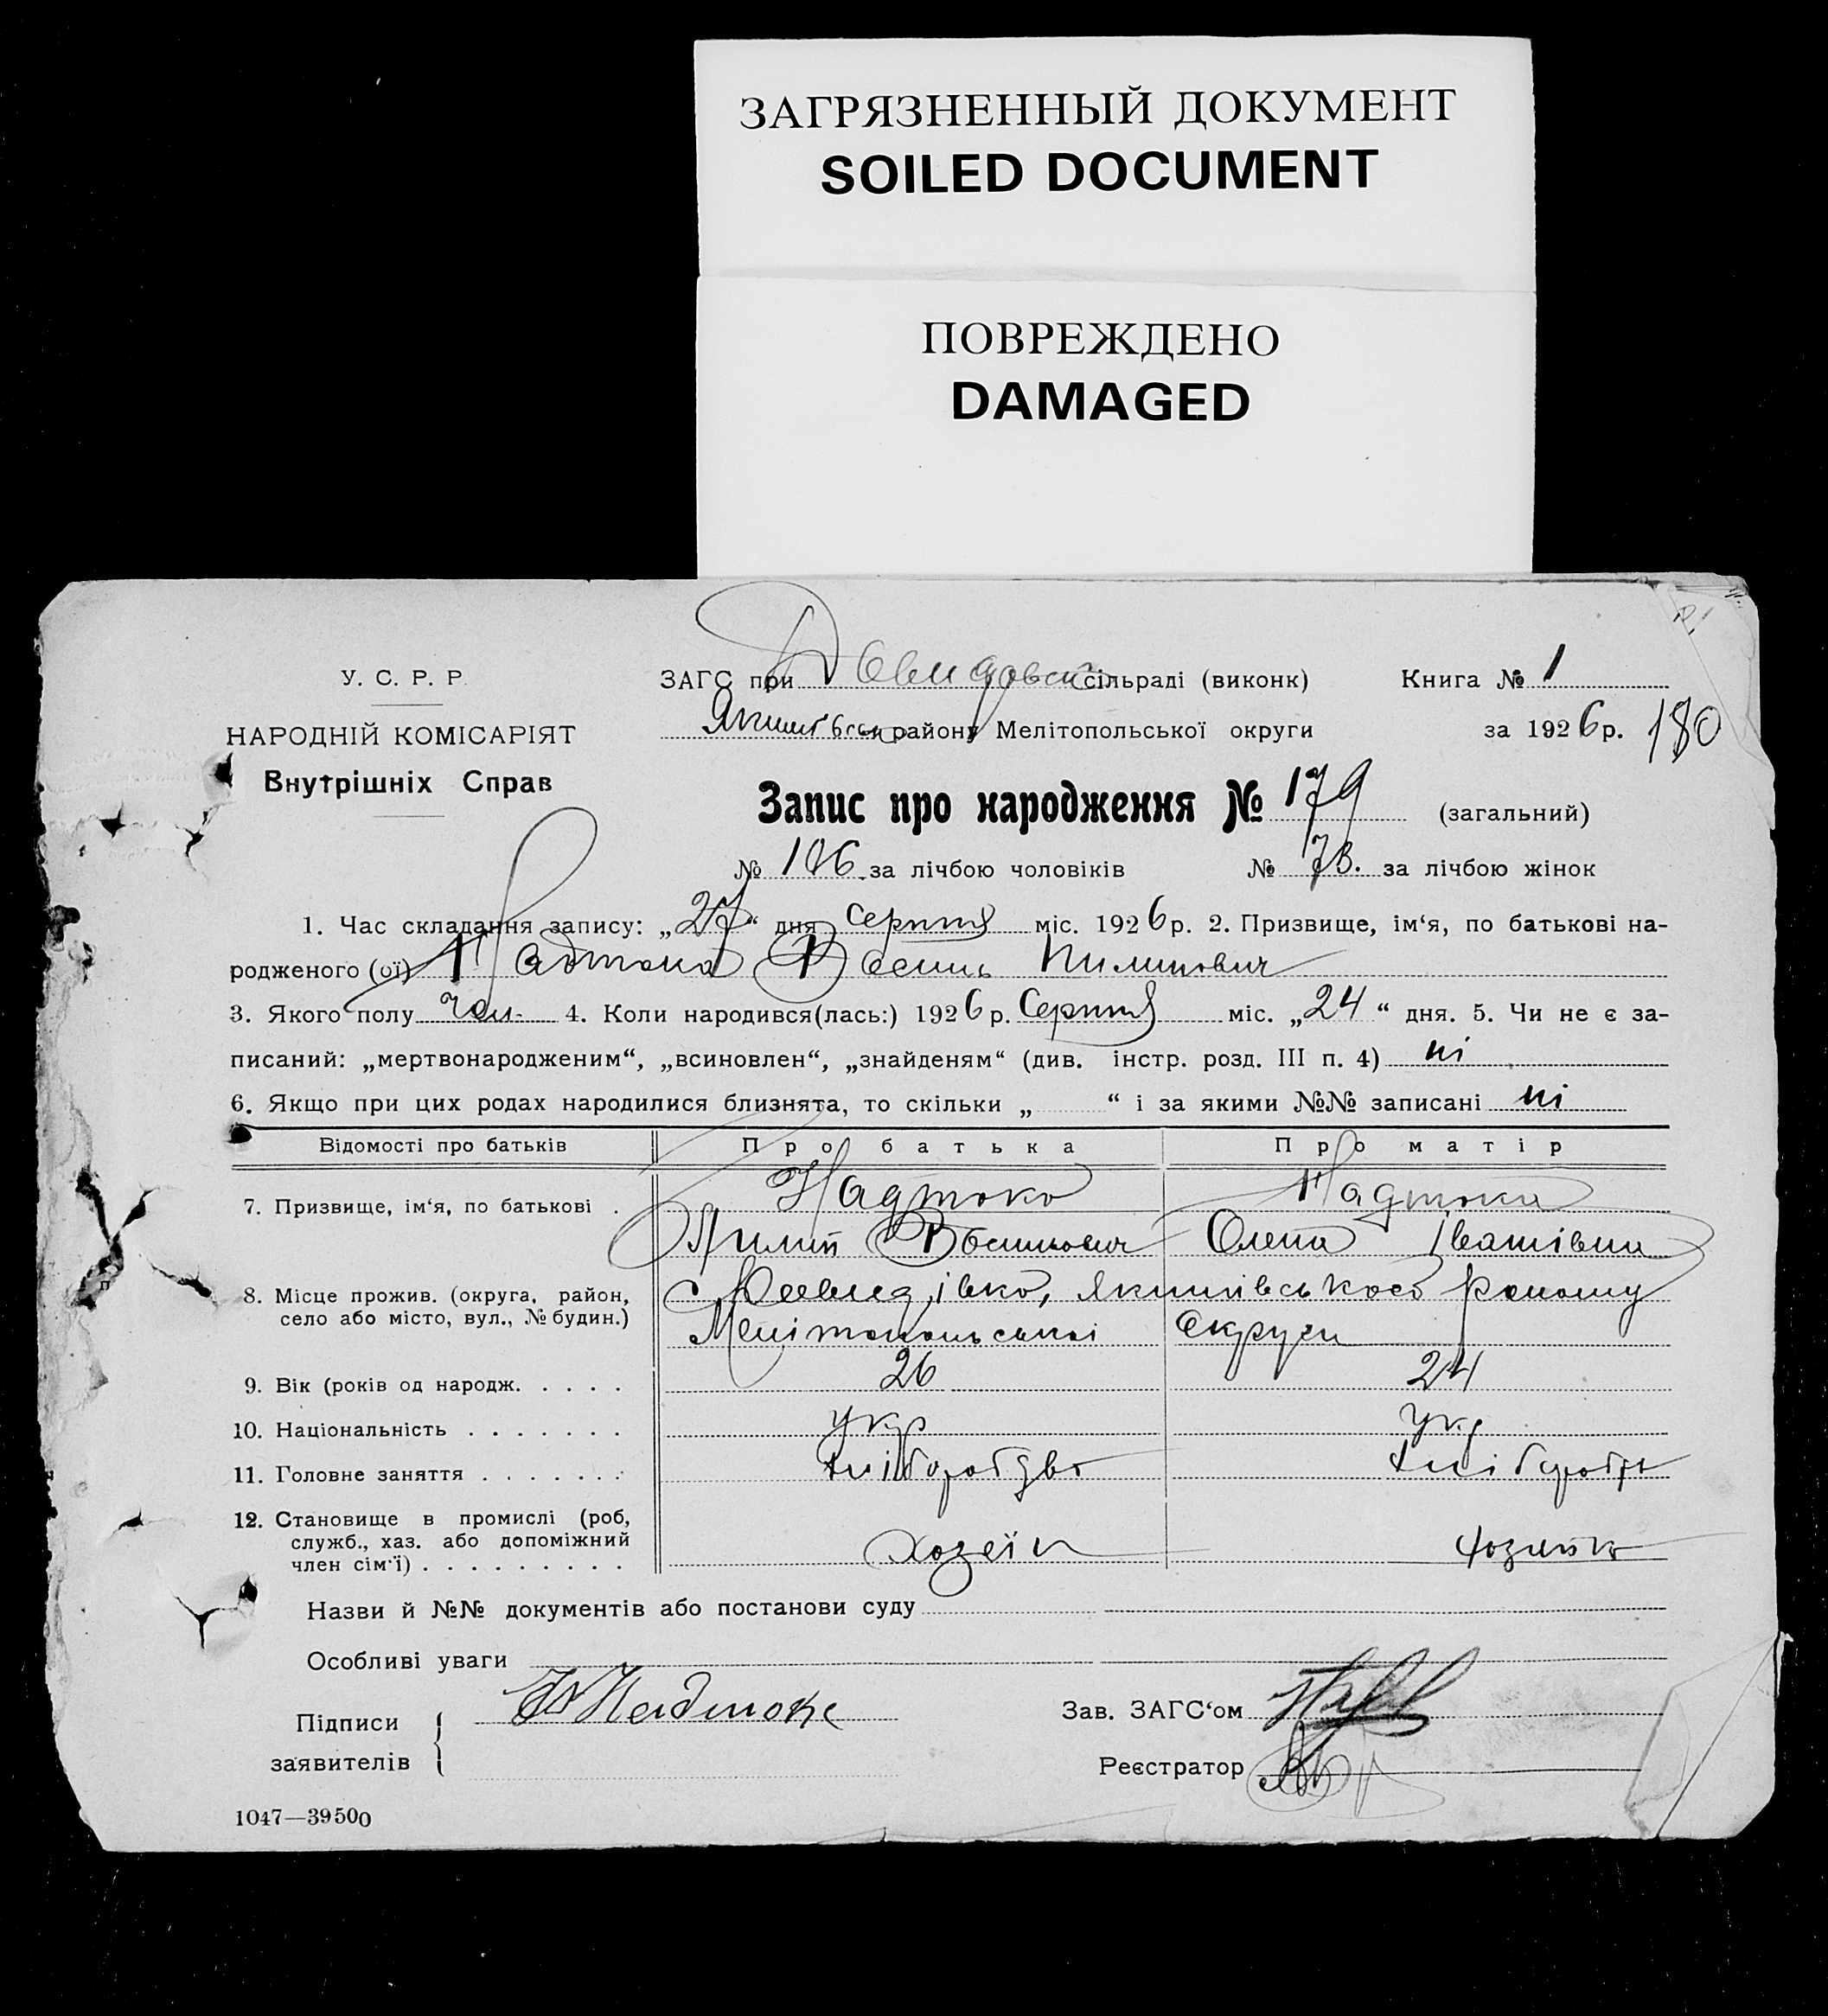 ЗАГРЯЗНЕННЫЙ ДОКУМЕНТ
SOILED DOCUMENT
ПОВРЕЖДЕНО
DAMAGED
У. С. Р. Р.
НАРОДНІЙ КОМІСАРІЯТ
Внутрішніх Справ
ЗАГС при Давидовск сільраді (виконк) Книга № 1
району Мелітопольської округи за 1926 р. 180
Запис про народження № 179 (загальний)
№ 106 за лічбою чоловіків № 73. за лічбою жінок
1. Час складання запису: „27“ дня серпня міс. 1926 р. 2. Призвище, ім‘я, по батькові на-
родженого (ої) Надтока Василь Пилипович
3. Якого полу чол. 4. Коли народився(лась:) 1926 р. Серпня міс. „24“ дня. 5. Чи не є за-
писаний: „мертвонародженим“, „всиновлен“, „знайденям“ (див. інстр. розд. III п. 4) ні
6. Якщо при цих родах народилися близнята, то скільки „ “ і за якими №№ записані ні
Відомості про батьків Про батька Про матір
7. Призвище, ім‘я, по батькові . Надтока Надтока
Пилип Васильович Олена Іванівна
8. Місце прожив. (округа, район, с Давидівка, Якимівського району
село або місто, вул., № будин.) Мелітопольської Округи
9. Вік (років од народж. . . . . 26 24
10. Національність . . . . . . . укр укр
11. Головне заняття . . . . . . . хліборобтво хлібороб
12. Становище в промислі (роб,
служб., хаз. або допоміжний
член сім‘ї) . . . . . . . . . хозеїн хозяйка
Назви й №№ документів або постанови суду
Особливі уваги
Підписи Надтока Зав. ЗАГС‘ом
заявителів Реєстратор
1047—39500